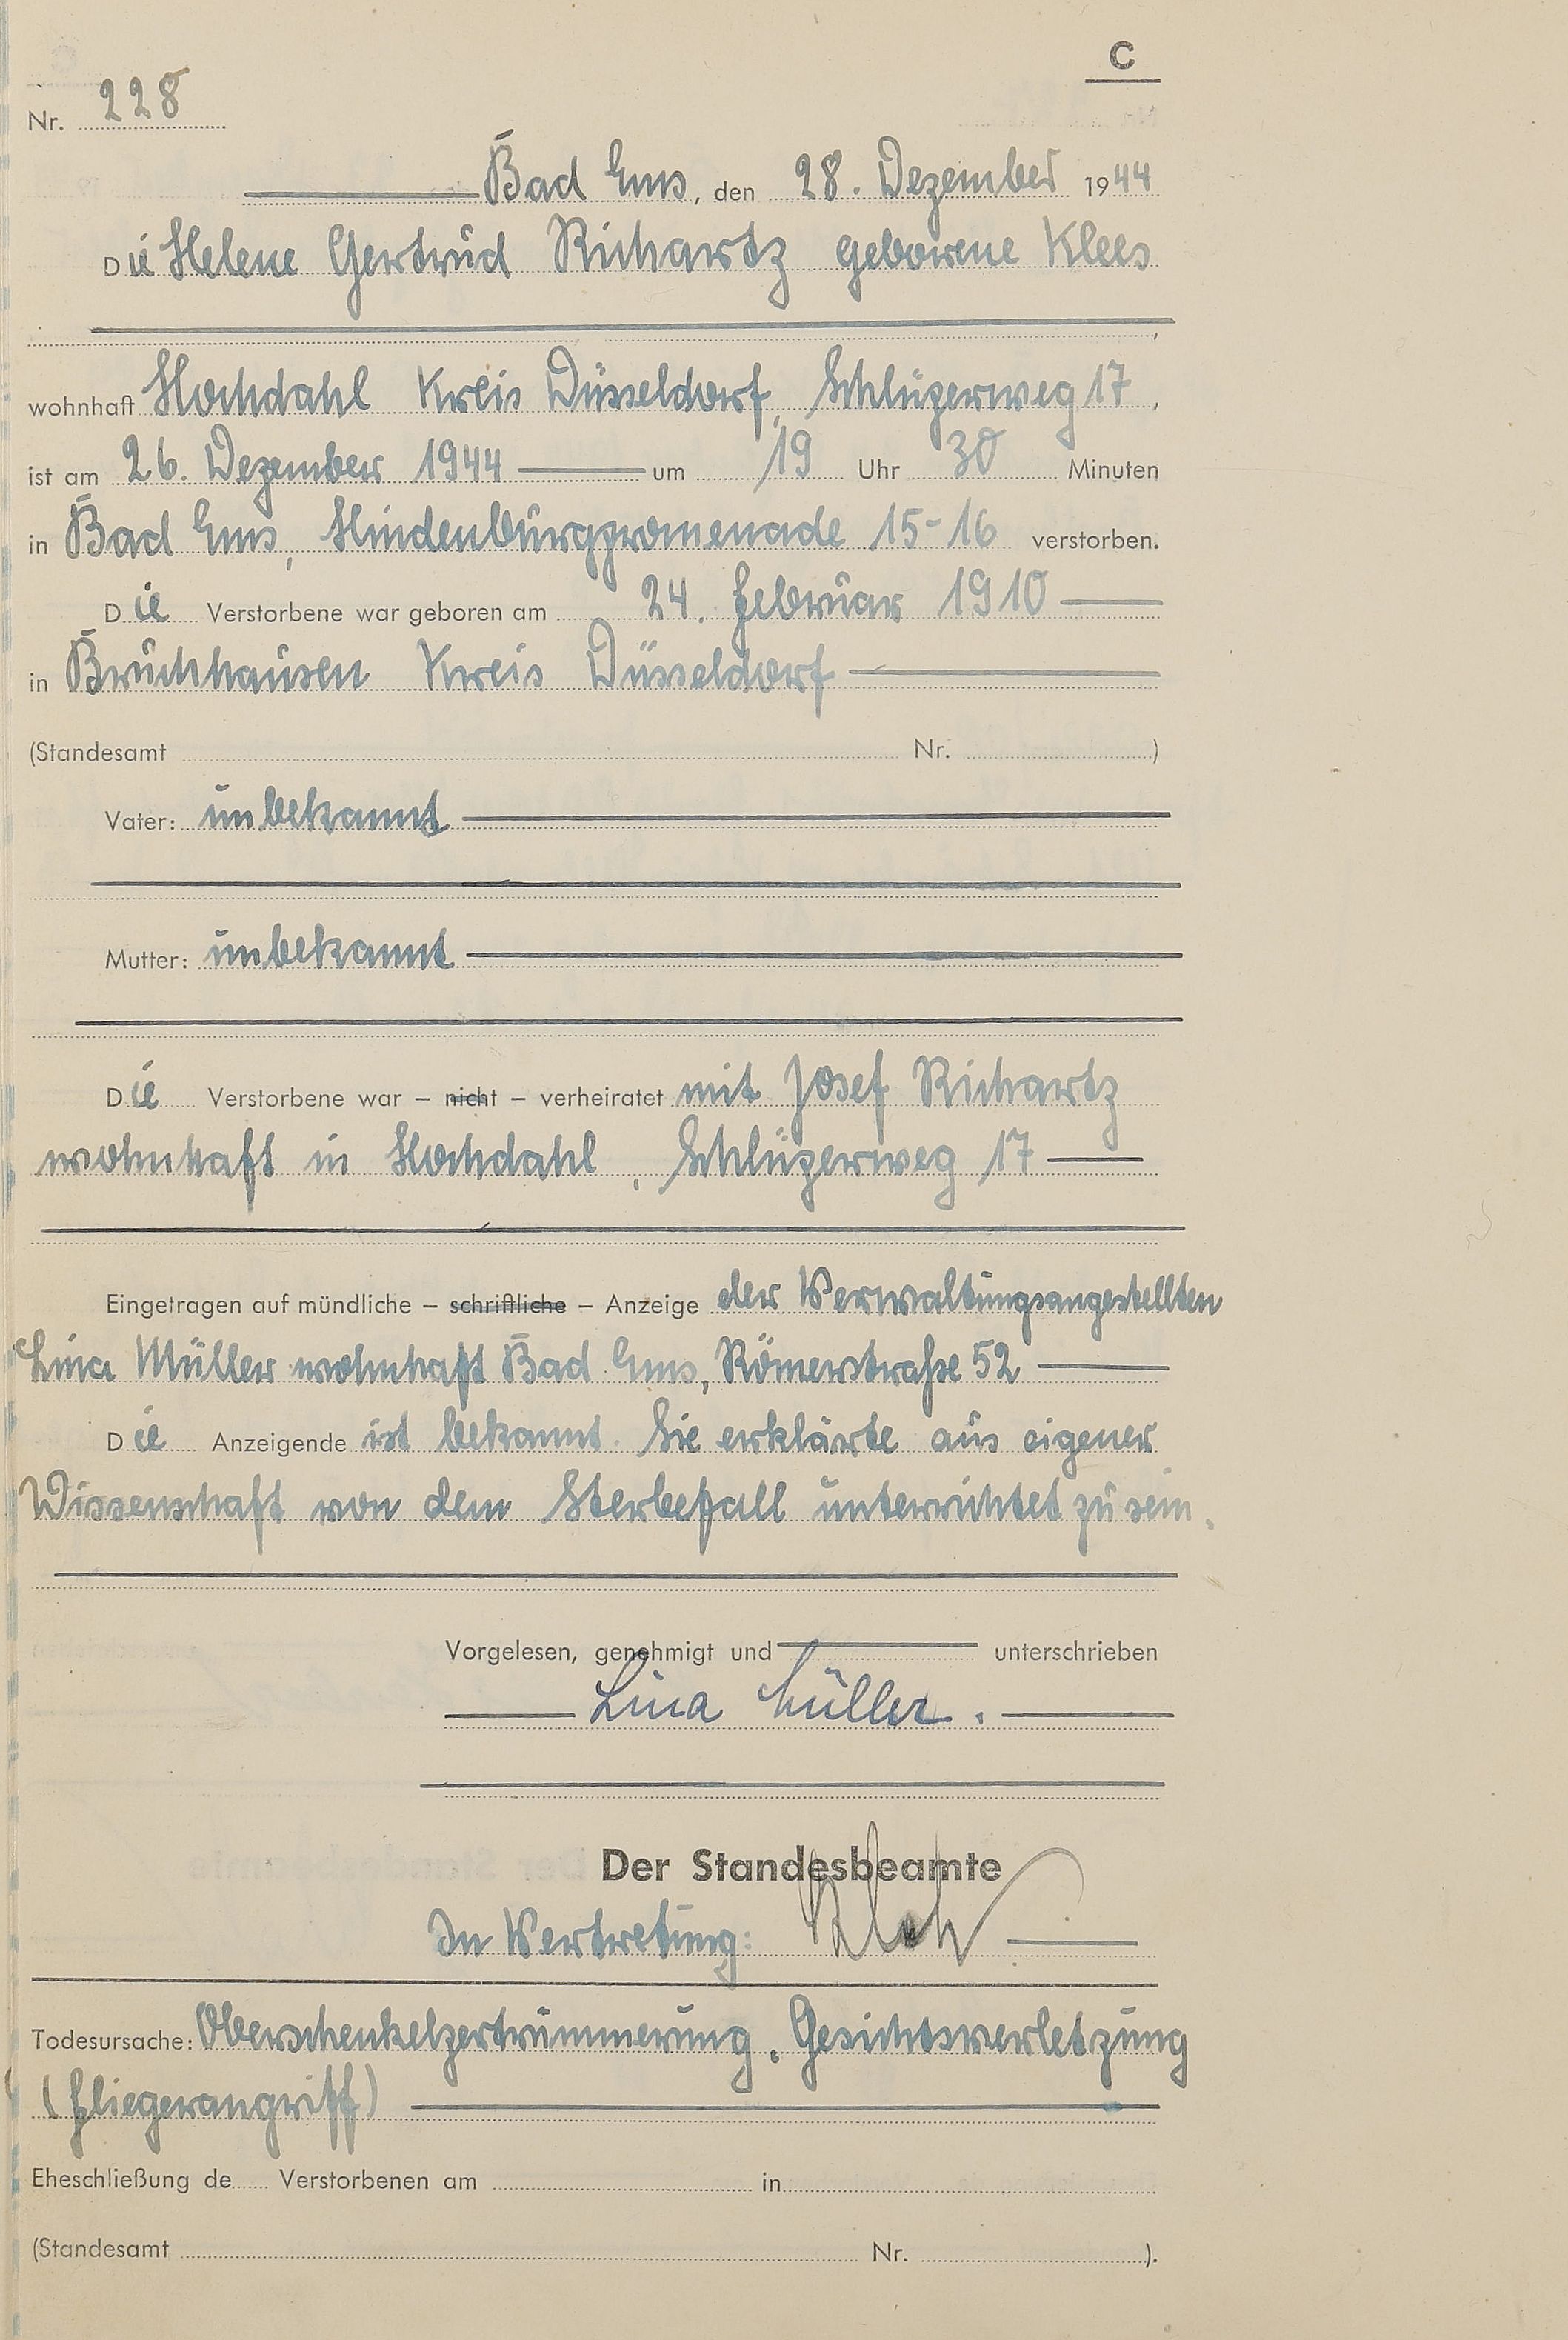 C
Nr. 228
Bad Ems, den 28. Dezember 1944
Die Helene Gertrud Richartz geborene Klees
,
wohnhaft Hochdahl Kreis Düsseldorf, Schlüperweg 17,
ist am 26. Dezember 1944 um 19 Uhr 30 Minuten
in Bad Ems, Hindenburgpromenade 15-16 verstorben.
Die Verstorbene war geboren am 24. Februar 1910
in Bruchhausen Kreis Düsseldorf
(Standesamt Nr. )
Vater: unbekannt
Mutter: unbekannt
Die Verstorbene war – nicht – verheiratet mit Josef Richartz
wohnhaft in Hochdahl, Schlüperweg 17
Eingetragen auf mündliche – schriftliche – Anzeige der Verwaltungsangestellten
Lina Müller wohnhaft Bad Ems, Römerstraße 52
Die Anzeigende ist bekannt. Sie erklärte aus eigener
Wissenschaft von dem Sterbefall unterrichtet zu sein.
Vorgelesen, genehmigt und unterschrieben
Lina Müller.
Der Standesbeamte
In Vertretung:
Todesursache: Oberschenkelzertrümmerung, Gesichtsverletzung
(Fliegerangriff)
Eheschließung de Verstorbenen am in
(Standesamt Nr. ).